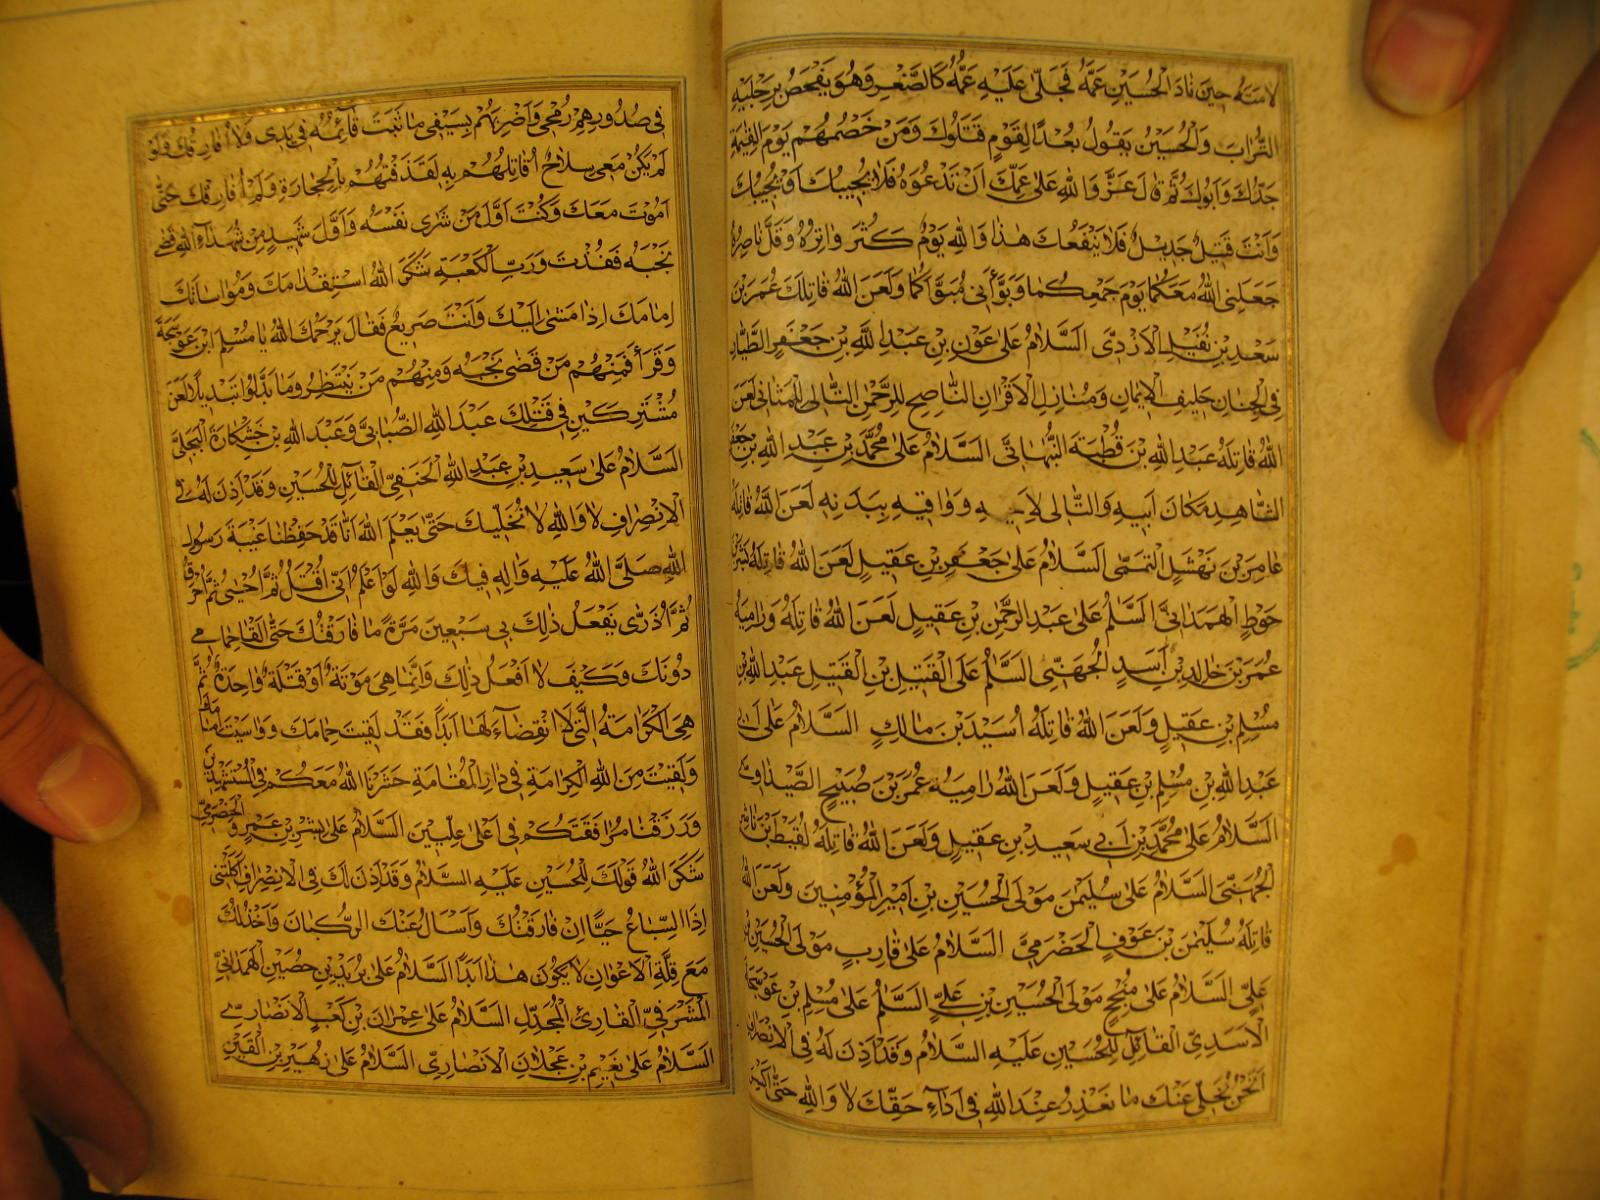 لامته حين نادى الحسين عمه فجلى عليه عمه كالصقر وهو يفحص برجليه
التراب والحسين يقول بعدا لقوم قتلوك ومن خصمهم يوم القيمة
جدك وابوك ثم قال عز والله على عمك ان تدعوه فلا يجيبك او يجيبك
وانت قتيل جديل فلا ينفعك هذا والله يوم كثر واتره وقل ناصره
جعلني الله معكما يوم جمعكما وبوأني مبوأكما ولعن الله قاتلك عمر بن
سعد بن نفيل الازدي السلام على عون بن عبد الله بن جعفر الطيار
في الجنان حليف الايمان ومنازل الاقران الناصح للرحمن التالي للمثاني لعن
الله قاتله عبد الله بن قطبة النبهاني السلام على محمد بن عبد الله بن جعفر
الشاهد مكان ابيه والتالي لاخيه وواقيه ببدنه لعن الله قاتله
عامر بن نهشل التميمي السلام على جعفر بن عقيل لعن الله قاتله بشر بن
حوط الهمداني السلم على عبد الرحمن بن عقيل لعن الله قاتله وراميه
عمر بن خالد بن اسد الجهني السلم على القتيل بن القتيل عبد الله بن
مسلم بن عقيل ولعن الله قاتله اسيد بن مالك السلام على ابي
عبد الله بن مسلم بن عقيل ولعن الله راميه عمر بن صبيح الصيداوي
السلام على محمد بن ابي سعيد بن عقيل ولعن الله قاتله لقيط بن ناشر
الجهني السلام على سليمن مولى الحسين بن امير المؤمنين ولعن الله
قاتله سليمن بن عوف الحضرمي السلام على قارب مولى الحسين بن
علي السلام على منجح مولى الحسين بن علي السلم على مسلم بن عوسجة
الاسدي القائل للحسين عليه السلام وقد اذن له في الانصراف
انحن نخلي عنك ما نعذر عند الله في اداء حقك لا والله حتى اكسر
في صدورهم رمحي واضربهم بسيفي ما ثبت قائمه في يدي ولا افارقك ولو
لم يكن معي سلاح اقاتلهم به لقذفتهم بالحجارة ولم افارقك حتى
اموت معك وكنت اول من شرى نفسه واول شهيد من شهداء الله قضى
نحبه ففزت ورب الكعبة شكر الله استقدامك ومواساتك
امامك اذا مشى اليك وانت صريع فقال يرحمك الله يا مسلم ابن عوسجة
وقرأ فمنهم من قضى نحبه ومنهم من ينتظر وما بدلوا تبديلا لعن
مشتركين في قتلك عبد الله الضبابي وعبد الله بن خشكارة البجلي
السلام على سعيد بن عبد الله الحنفي القائل للحسين وقد اذن له في
الانصراف لا والله لا نخليك حتى يعلم الله انا قد حفظنا غيبة رسول
الله صلى الله عليه واله فيك والله لو اعلم اني اقتل ثم احيى ثم احرق
ثم اذرى يفعل ذلك بي سبعين مرة ما فارقتك حتى القى حمامي
دونك وكيف لا افعل ذلك وانما هي موتة او قتلة واحدة ثم
هي الكرامة التي لا انقضاء لها ابدا فقد لقيت حمامك وواسيت امامك
ولقيت من الله الكرامة في دار المقامة حشرنا الله معكم في المستشهدين
ورزقنا مرافقتكم في اعلى عليين السلام على بشر بن عمرو الحضرمي
شكر الله قولك للحسين عليه السلام وقد اذن لك في الانصراف اكلتني
اذا السباع حيا ان فارقتك واسال عنك الركبان واخذلك
مع قلة الاعوان لا يكون هذا ابدا السلام على بريد بن حصين الهمداني
المشرفي القارئ المجدل السلام على عمران بن كعب الانصاري
السلام على نعيم بن عجلان الانصاري السلام على زهير بن القين